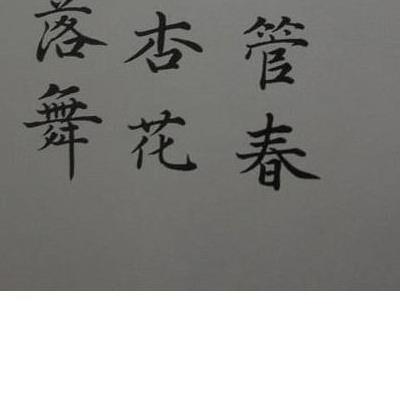 管春
杏花
落舞